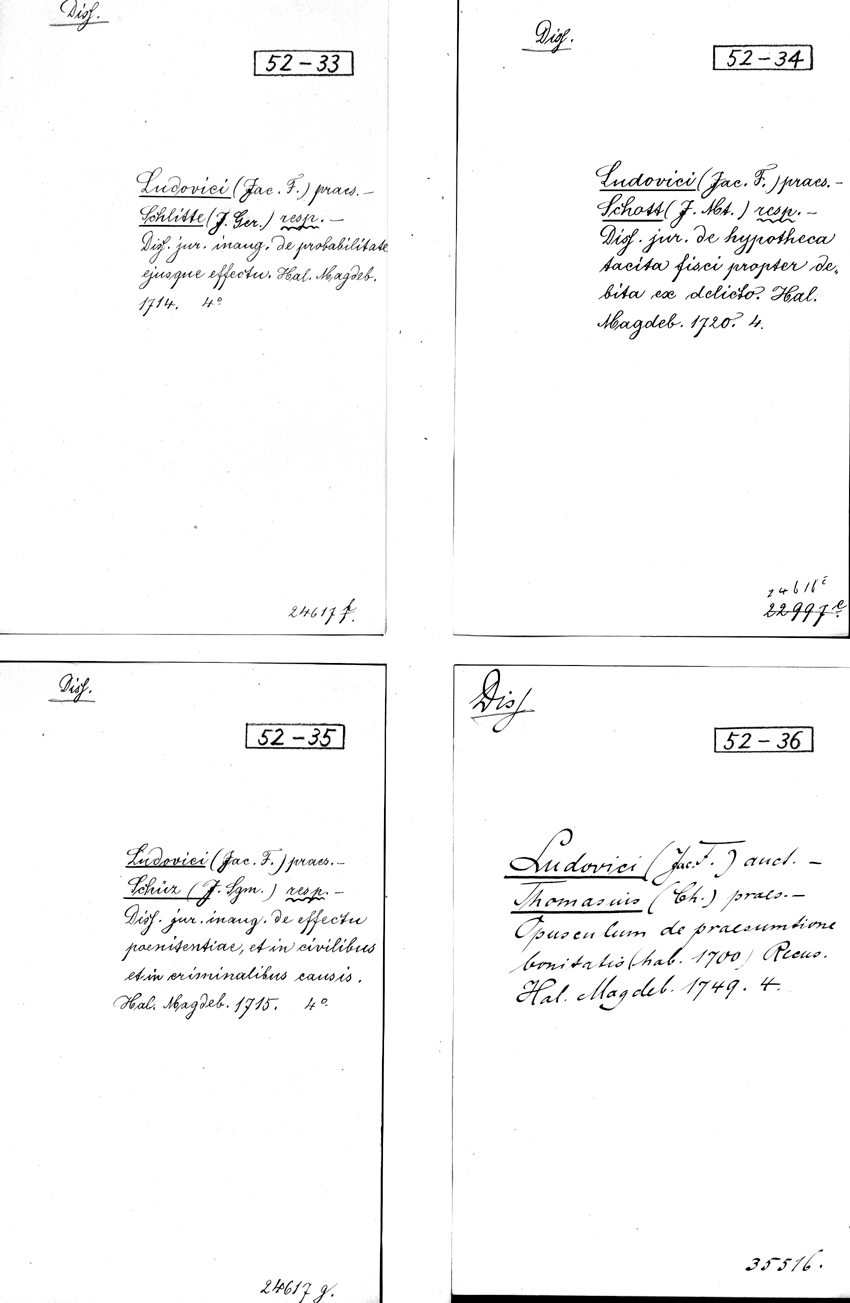 Diss.
52-33
Ludovici (Jac. F.) praes. –
Schlitte (J. Ger.) resp. –
Diss. jur. inaug. de probabilitate
ejusque effectu. Hal. Magdeb.
1714. 4°
24617 f.
Diss.
52-34
Ludovici (Jac. F.) praes. –
Schott (J. Mt.) resp. –
Diss. jur. de hypotheca
tacita fisci propter de-
bita ex delicto. Hal.
Magdeb. 1720. 4.
24616 c
22997 e.
Diss.
52-35
Ludovici (Jac. F.) praes. –
Schüz (J. Sgm.) resp. –
Diss. jur. inaug. de effectu
poenitentiae, et in civilibus
et in criminalibus causis.
Hal. Magdeb. 1715. 4°
24617 g.
Diss
52-36
Ludovici (Jac. F.) auct. –
Thomasius (Ch.) praes. –
Opusculum de praesumtione
bonitatis (hab. 1700) Recus.
Hal. Magdeb. 1749. 4.
35516.